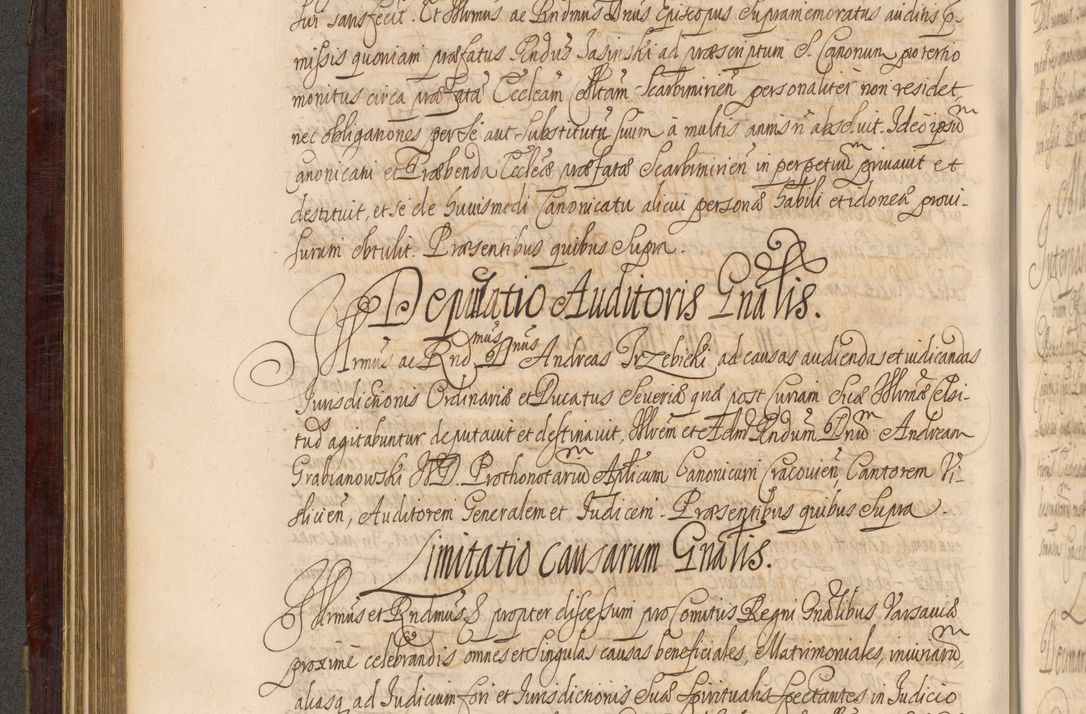 sur satisfecit. Et Illrmus ac Rndmus Dnus Episcopus Supramemoratus auditis p-
missis quoniam præfatus Rndus Jasinski ad præscriptum S. Canonum po tertio
monitus circa præfatā Eccleām Colltam Scarbimirien personaliter non residet
nec obligationes per se aut Substitutū suum à multis annis ñ absoluit. Ideo ipsū
Canonicatu et Præbenda Eccleæ præfatæ Scarbimirien in perpetuū priuauit et
destituit, et se de huiusmodi Canonicatu alicui personæ habili et idoneæ proui-
surum obtulit. Præsentibus quibus Supra.
Deputatio Auditoris Gnalis.
Illrmus ac Rndmus Dnus Andreas Trzebicki ad causas audiendas et iudicandas
Jurisdictionis Ordinariæ et Ducatus Seueriæ quæ post Curiam Suæ Illrmæ Celsi-
tuds agitabuntur deputauit et destinauit, Illrem et Adm Rndum Dnū Andream
Grabianowski IVD. Prothonotariū Aplicum Canonicum Cracouien, Cantorem Vi-
sliciēn, Auditorem Generalem et Iudicem. Præsentibus quibus Supra.
Limitatio Causarum Gnalis.
Illrmus et Rndmus &c propter discessum pro Comitijs Regni Gnalibus Varsauiæ
proximè celebrandis omnes et singulas causas beneficiales, Matrimoniales, iniuriarū
aliasq ad Iudicium fori et Jurisdictionis Suæ Spiritualis spectantes in Iudicio